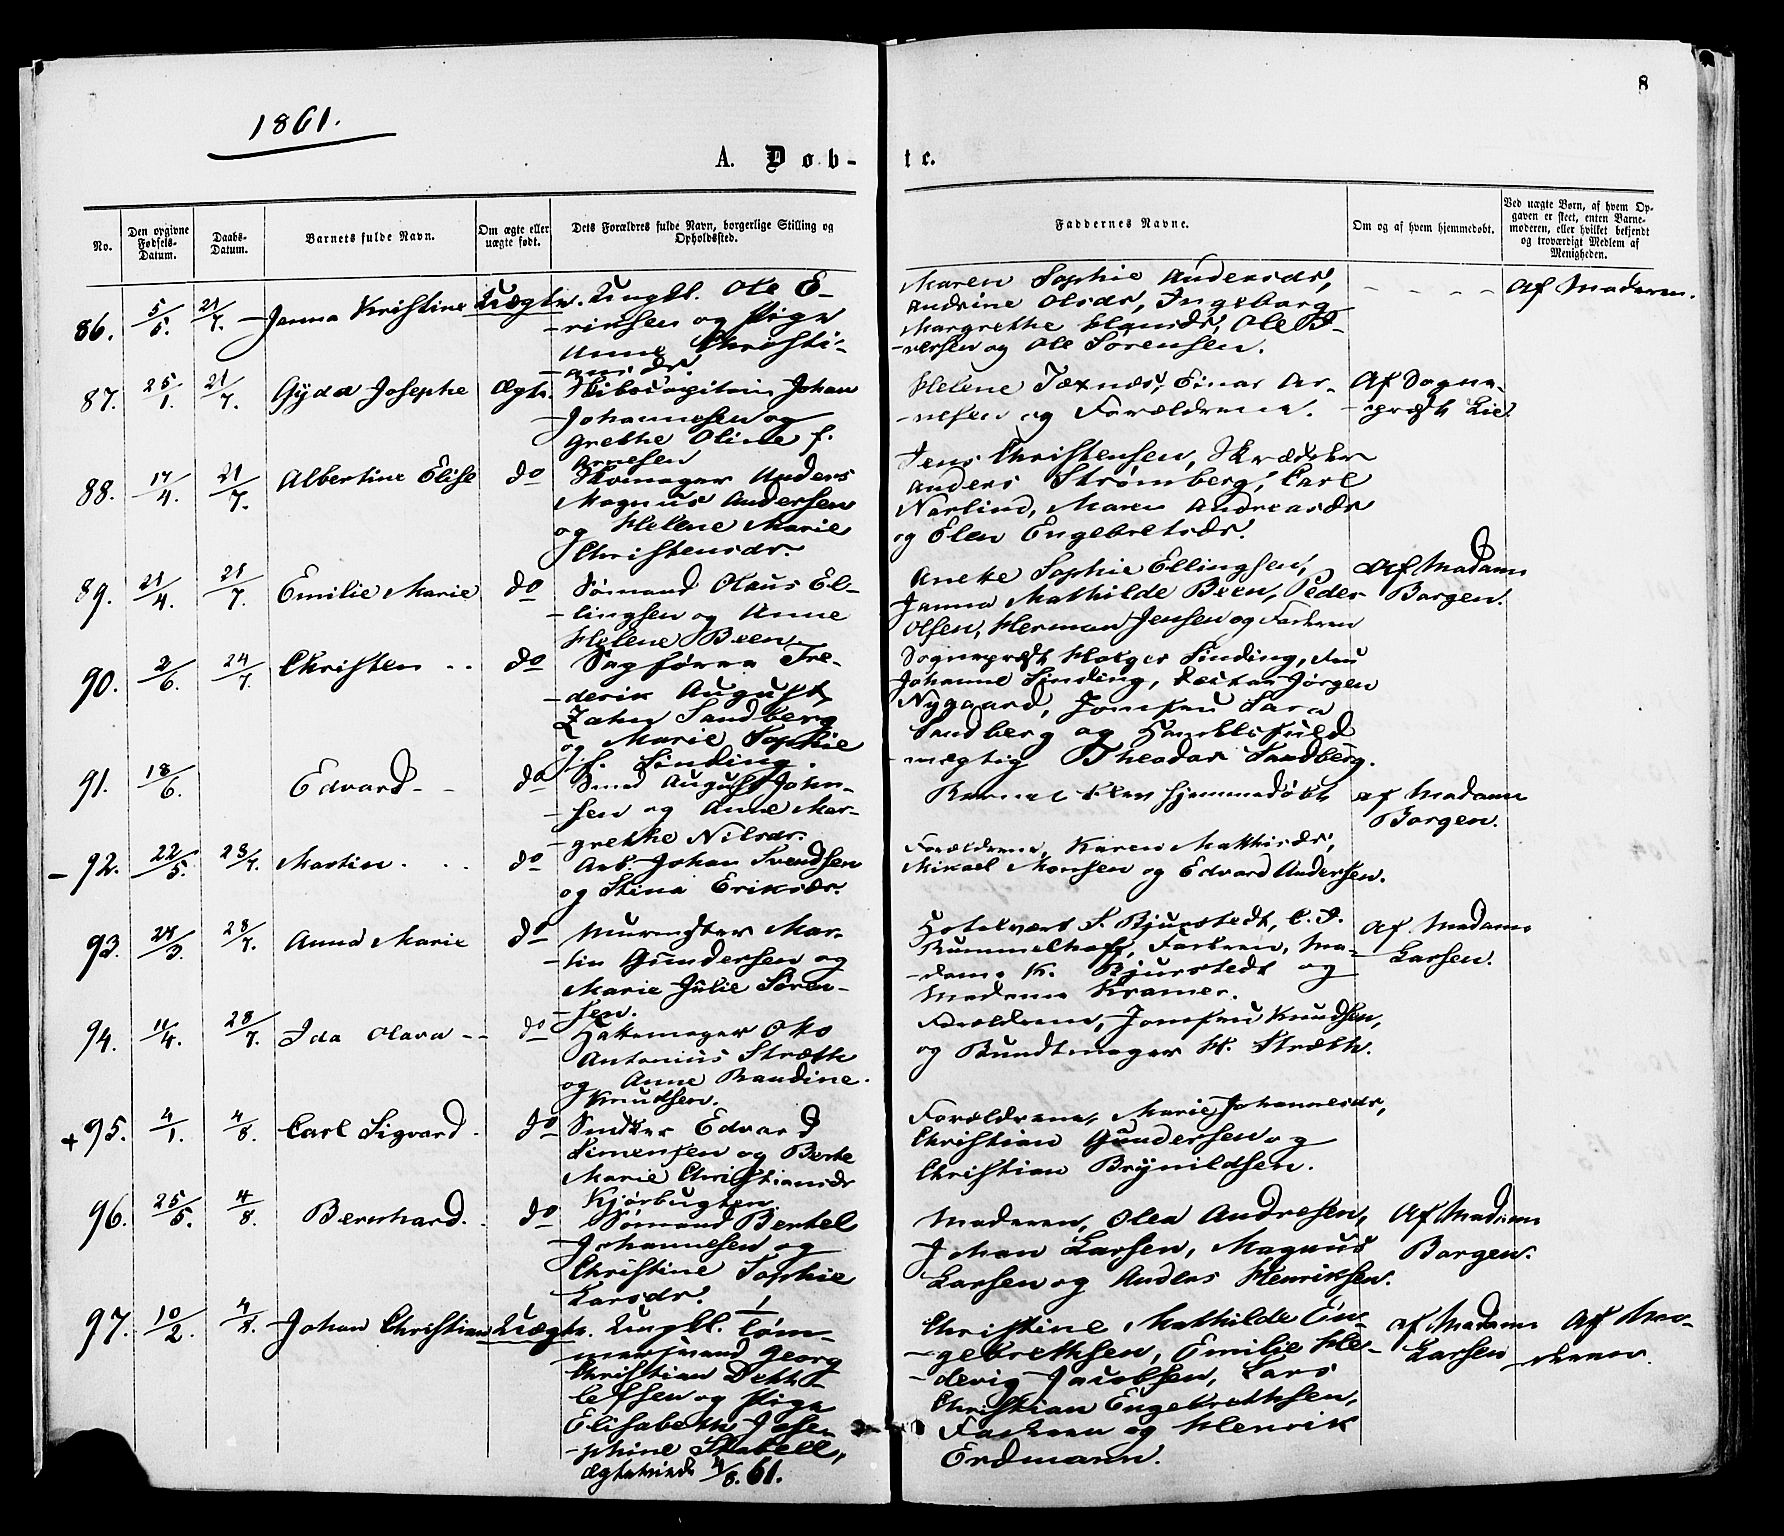 8
1861.
A. Döb-
te.
No.
Den opgivne Fødsels-Datum.
Daabs-Datum.
Barnets fulde Navn.
Om ægte eller uægte født.
Dets Forældres fulde Navn, borgerlige Stilling og Opholdssted.
Faddernes Navne.
Om og af hvem hjemmedøbt.
Ved uægte Børn, af hvem Opgaven er skeet, enten Barnemoderen, eller hvilket bekjendt og troværdigt Medlem af Menigheden.
86. 5/5. 21/7. Jenna Kristine Uægte. Ungkl. Ole E-
-riksen og Pige
Anne Christi-
-ansdr.
Maren Sophie Andersdr,
Andrine Olsdr, Ingeborg
Margrethe Hansdr, Ole I-
-versen og Ole Sørensen.
- - - - Af Moderen.
87. 25/1. 21/7. Gyda Josephe Ægte. Skibscapitain Johan
-Johannesen og
Grethe Oline f.
Arnesen
Helene Taxnæs, Einar Ar-
-nesen og Forældrene.
Af Sogne-
-præst Lie.
88. 17/4. 21/7. Albertine Elise do Skomager Anders
Magnus Andersen
og Helene Marie
Christensdr.
Jens Christensen, Skrædder
Anders Strømberg, Carl
Norlind, Maren Andreasdr
og Elen Engebretsdr.
89. 21/4. 21/7. Emilie Marie do Sømand Olaus El-
-lingsen og Anne
Helene Been.
Aneke Sophie Ellingsen,
Janna Mathilde Been, Peder
Olsen, Herman Jensen og Faderen
Af Madam
Borgen.
90. 2/6. 24/7. Christen - - do Sagfører Fre-
-derik August
Zahn Sandberg
og Marie Sophie
f. Sinding.
Sognepræst Holger Sinding, Fru
Johanne Sinding, Doctor Jørgen
Nygaard, Jomfru Sara
Sandberg og Handelsfuld-
-mægtig Theodor Sandberg.
91. 18/6. Edvard - - do Smed August John-
-sen og Anne Mar-
-grethe Nilsdr.
Barnet blev hjemmedøbt
af Madam
Borgen.
- 92. 22/5. 28/7. Martin. . . do Arb. Johan Svendsen
og Stina Eriksdr.
Forældrene, Karen Mathisdr,
Mikael Monsen og Edvard Andersen.
93. 24/3. 28/7. Anna Marie do Murmester Mar-
-tin Gundersen og
Marie Julie Søren-
-sen.
Hotelvært S. Bjurstedt, C. I.
Rummelhoff, Faderen, Ma-
-dame K. Bjurstedt og
Madame Kramer.
Af Madame
Larsen.
94. 11/4. 28/7. Ida Olava - - do Hattemager Oto
Antonius Stræth
og Anne Randine
Knudsen.
Forældrene, Jomfru Knudsen,
og Bundtmager H. Stræth.
+ 95. 4/1. 4/8. Carl Sigvard. do Snekker Edvard
Simensen og Berte
Marie Christiansdr
Kjørbugten.
Forældrene, Marie Johannesdr,
Christian Gundersen og
Christian Brynildsen.
96. 25/5. 4/8. Bernhard. do Sømand Bertel
-Johannesen og
Christine Sophie
Larsdr.
Moderen, Olea Andresen,
Johan Larsen, Magnus
Larsen og Anders Henriksen.
Af Madam
Borgen.
97. 10/2. 4/8. Johan Christian Uægte. Ungkl. Tøm-
-mermand Georg
Christian Dett-
-lefsen og Pige
Elisabeth Jose-
-phine Stabell,
Ægteviede 4/8. 61.
Christine Mathilde En-
-gebrethsen, Emilie He-
-devig Jacobsen, Lars
Christian Engebrethsen,
Faderen og Henrik
Erdmann.
af Madam
Larsen
Af Mo-
-deren.